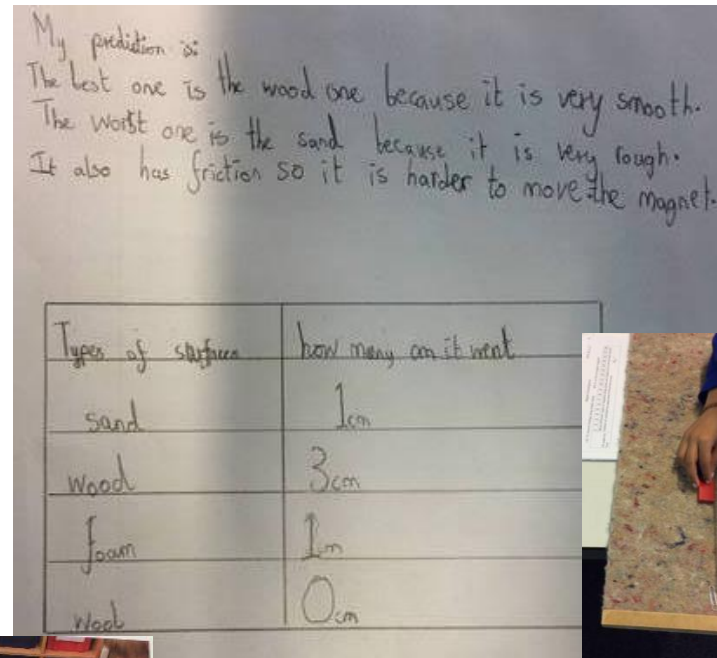 My prediction is:
The best one is the wood one because it is very smooth.
The worst one is the sand because it is very rough.
It also has friction so it is harder to move the magnet.
Types of surfaces how many cm it went
sand 1cm
wood 3cm
foam 1m
wool 0cm